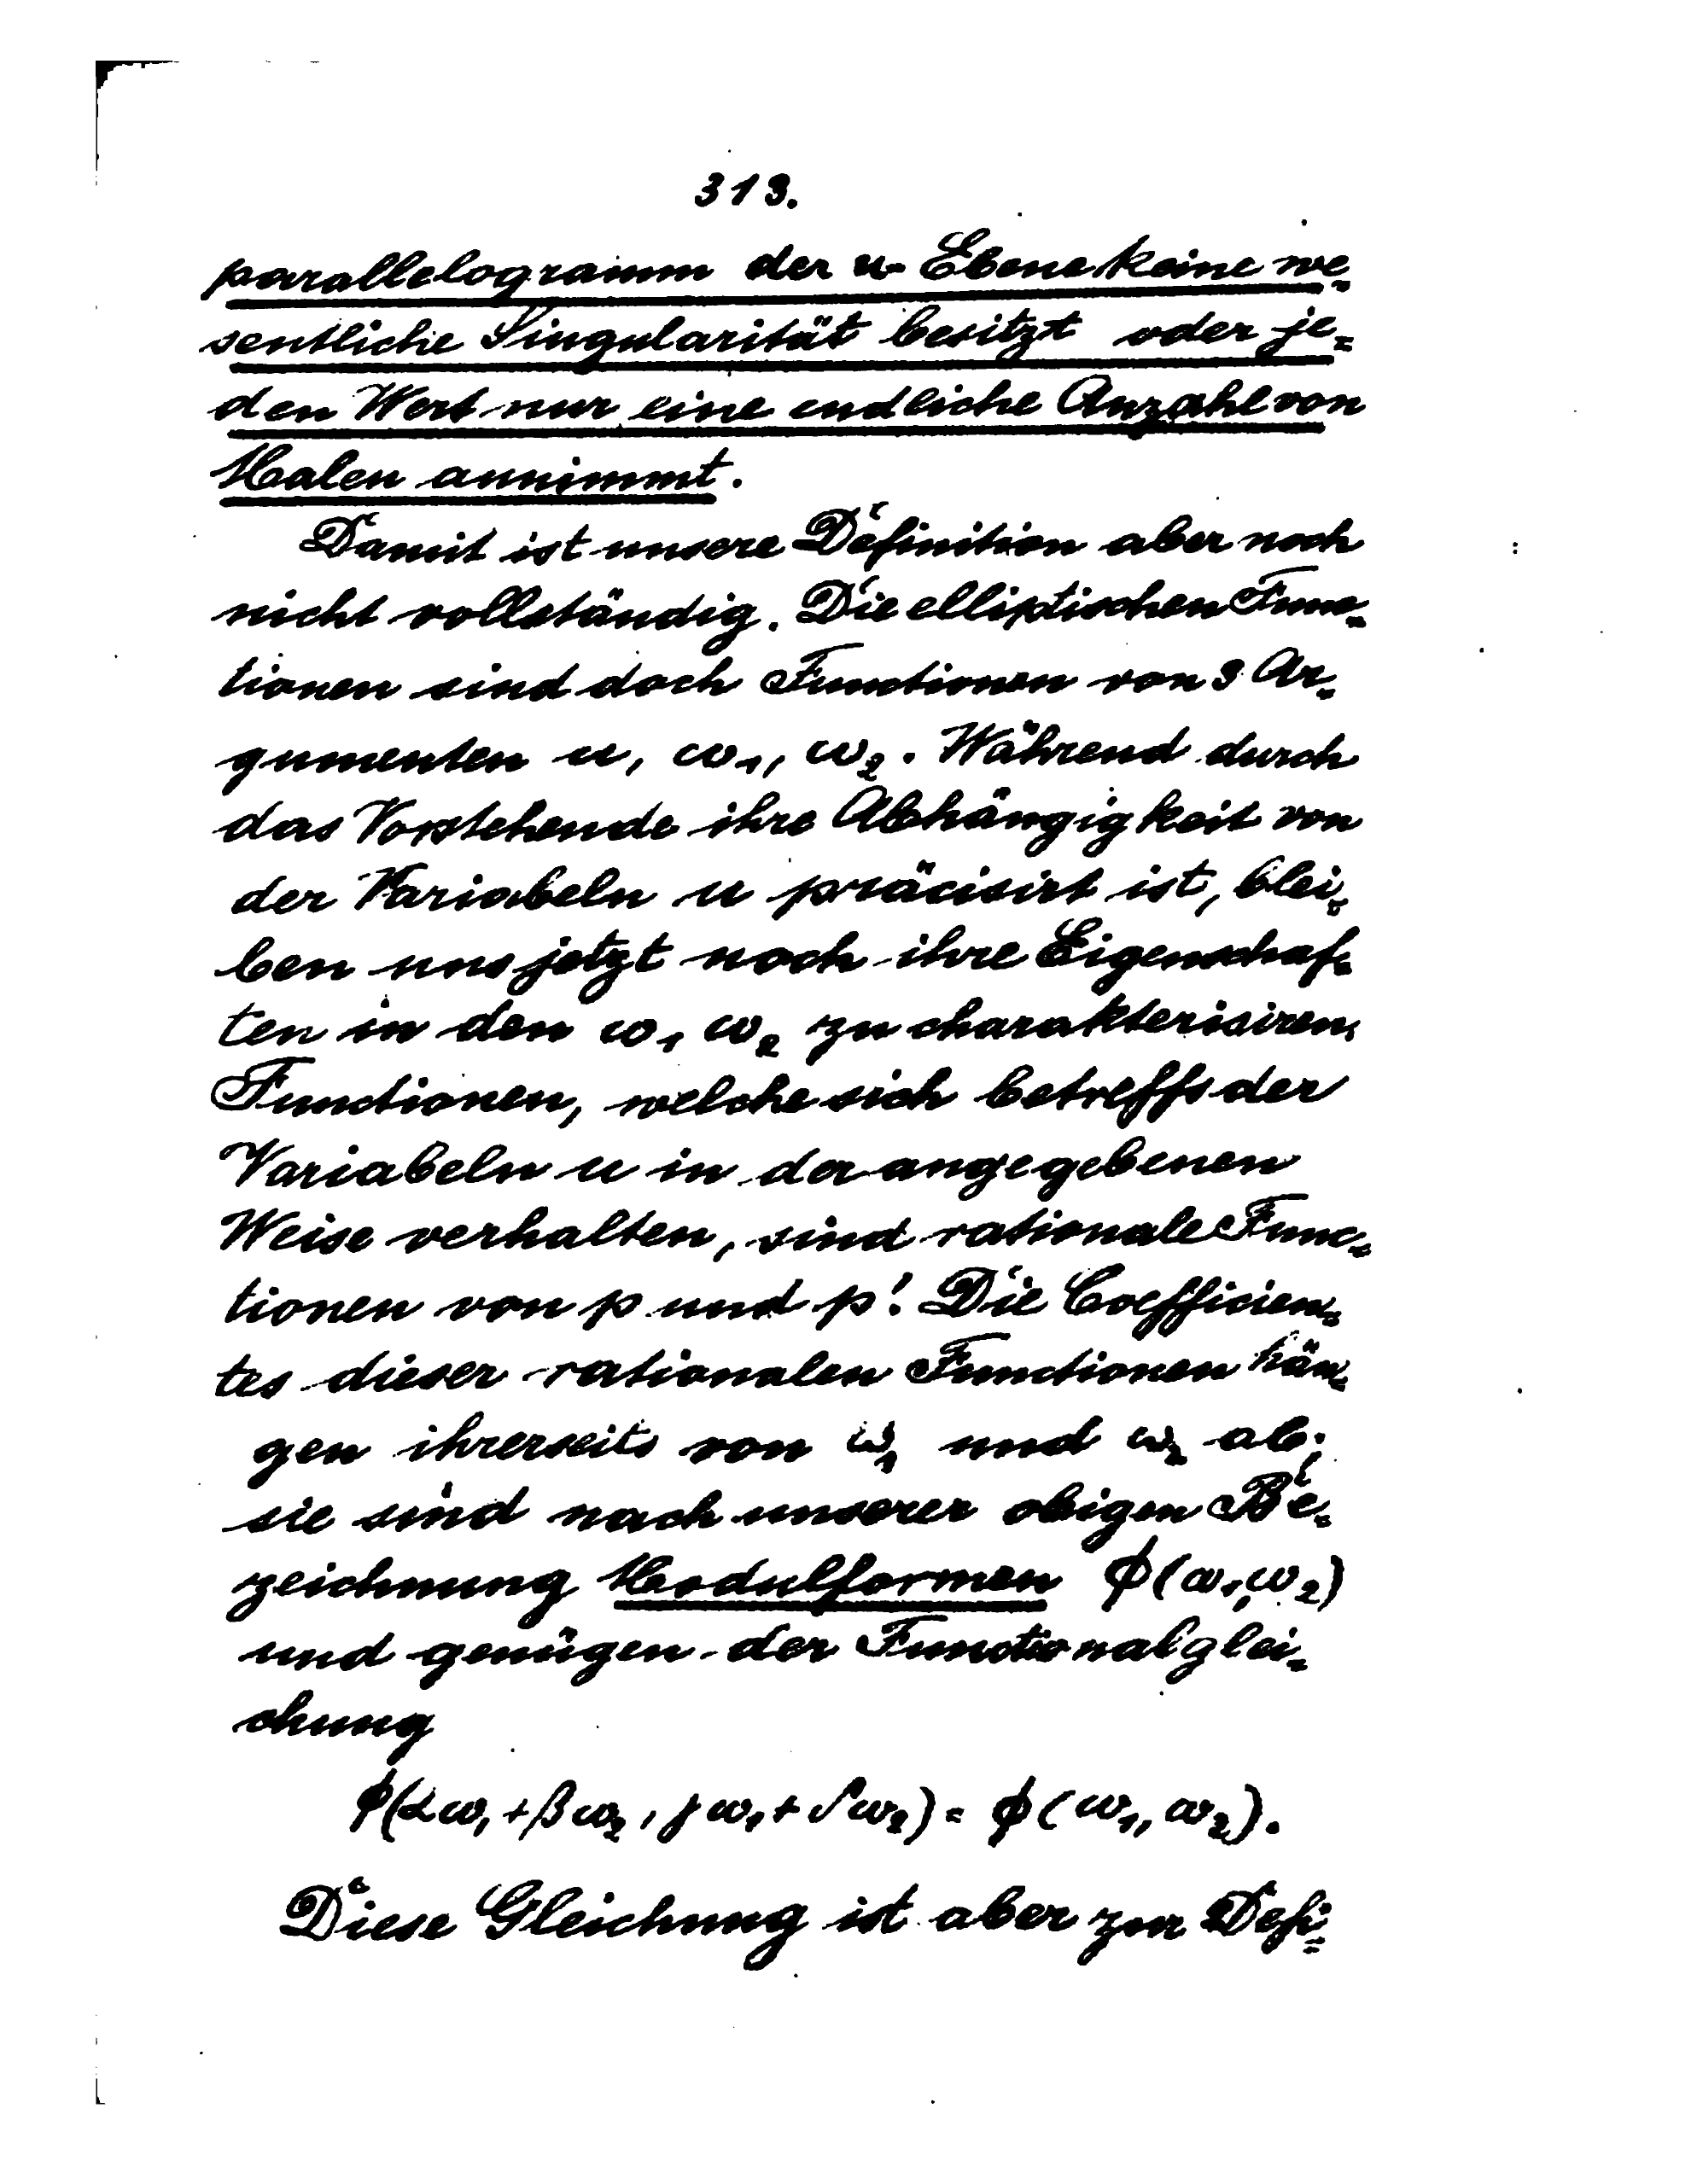 313.
parallelogramm der u-Ebene keine we=
sentliche Singularität besitzt oder je=
den Wert nur eine endliche Anzahl von
Malen annimmt.
Damit ist unsere Definition aber noch
nicht vollständig. Die elliptischen Func=
tionen sind doch Functionen von 3 Ar=
gumenten u, ω₁, ω₂. Während durch
das Vorstehende ihre Abhängigkeit von
der Variabeln u präcisirt ist, blei=
ben uns jetzt noch ihre Eigenschaf=
ten in den ω₁ ω₂ zu charakterisiren.
Functionen, welche sich betreffs der
Variabeln u in der angegebenen
Weise verhalten, sind rationale Func=
tionen von p und p'. Die Coefficien=
tes dieser rationalen Functionen hän=
gen ihrerseits von ω₁ und ω₂ ab;
sie sind nach unserer obigen Be=
zeichnung Modulformen ϕ(ω₁,ω₂)
und genügen der Functionalglei=
chung
ϕ(αω₁+βω₂, γω₁+δω₂) = ϕ(ω₁, ω₂).
Diese Gleichung ist aber zur Defi=